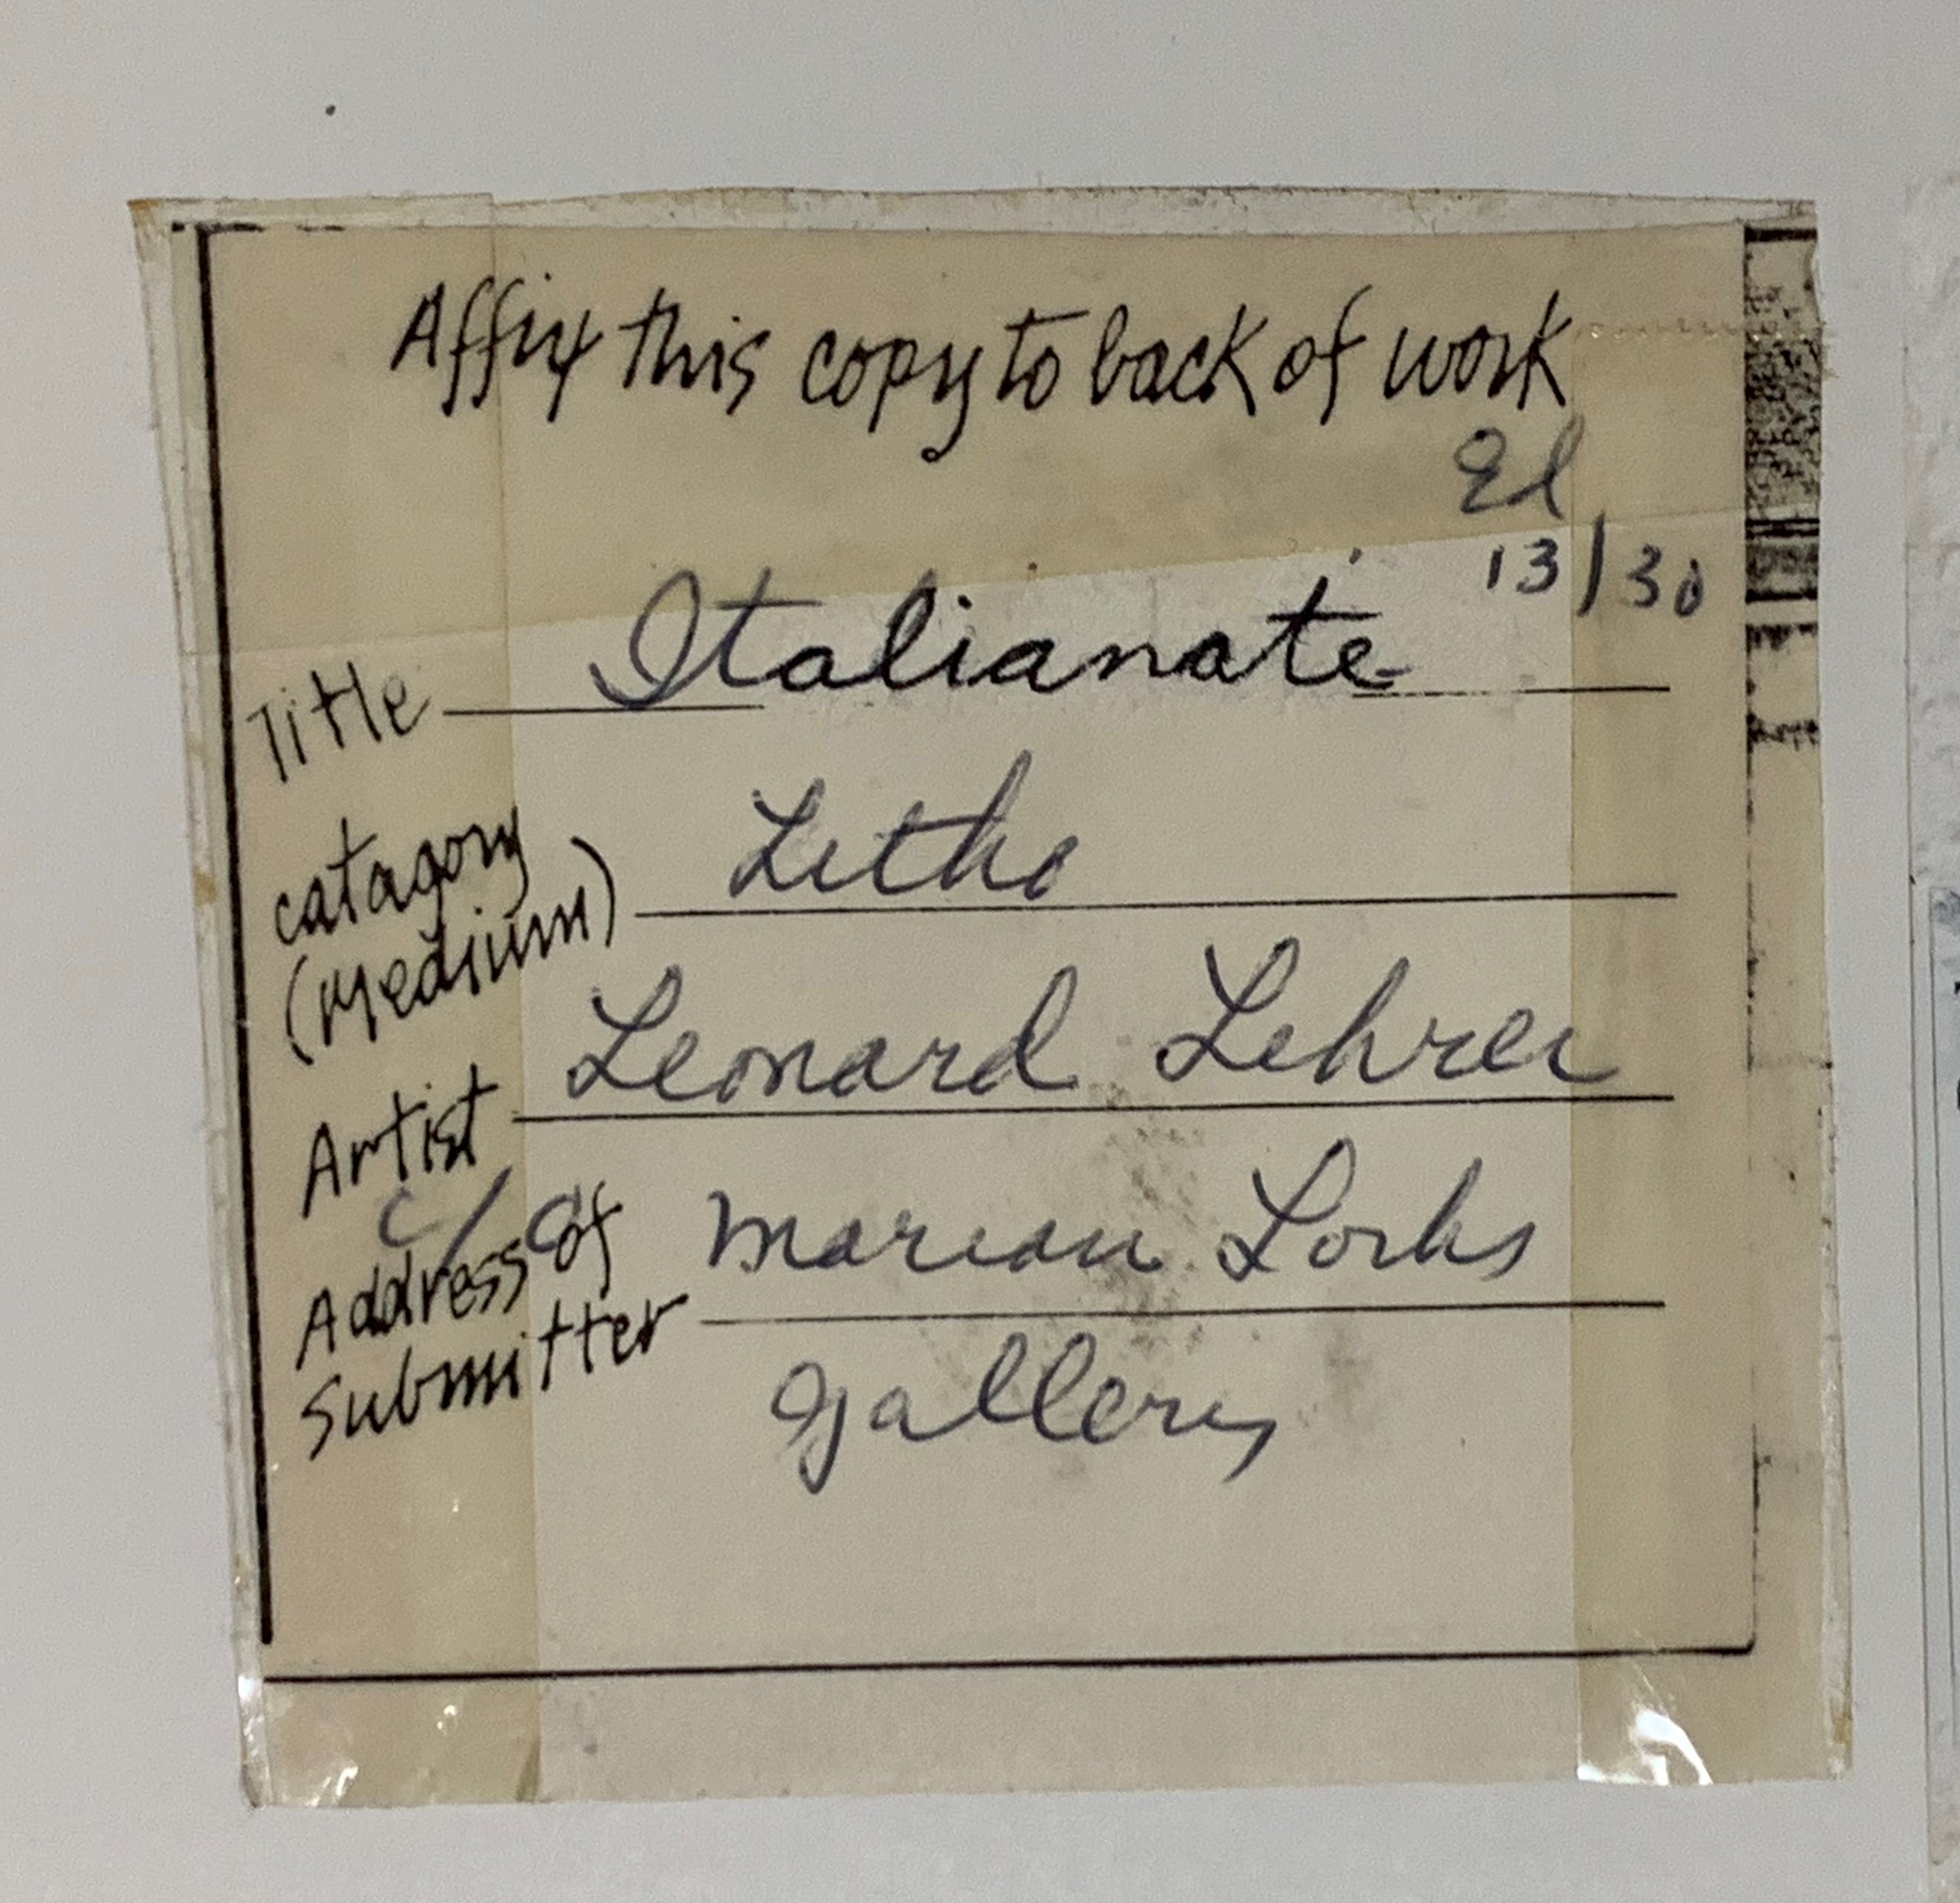 Affix this copy to back of work
Ed
13/30
Title Italianate
catagory
(Medium) Litho
Artist Leonard Lehrer
c/o Marian Locks
Address of
Submitter
Gallery